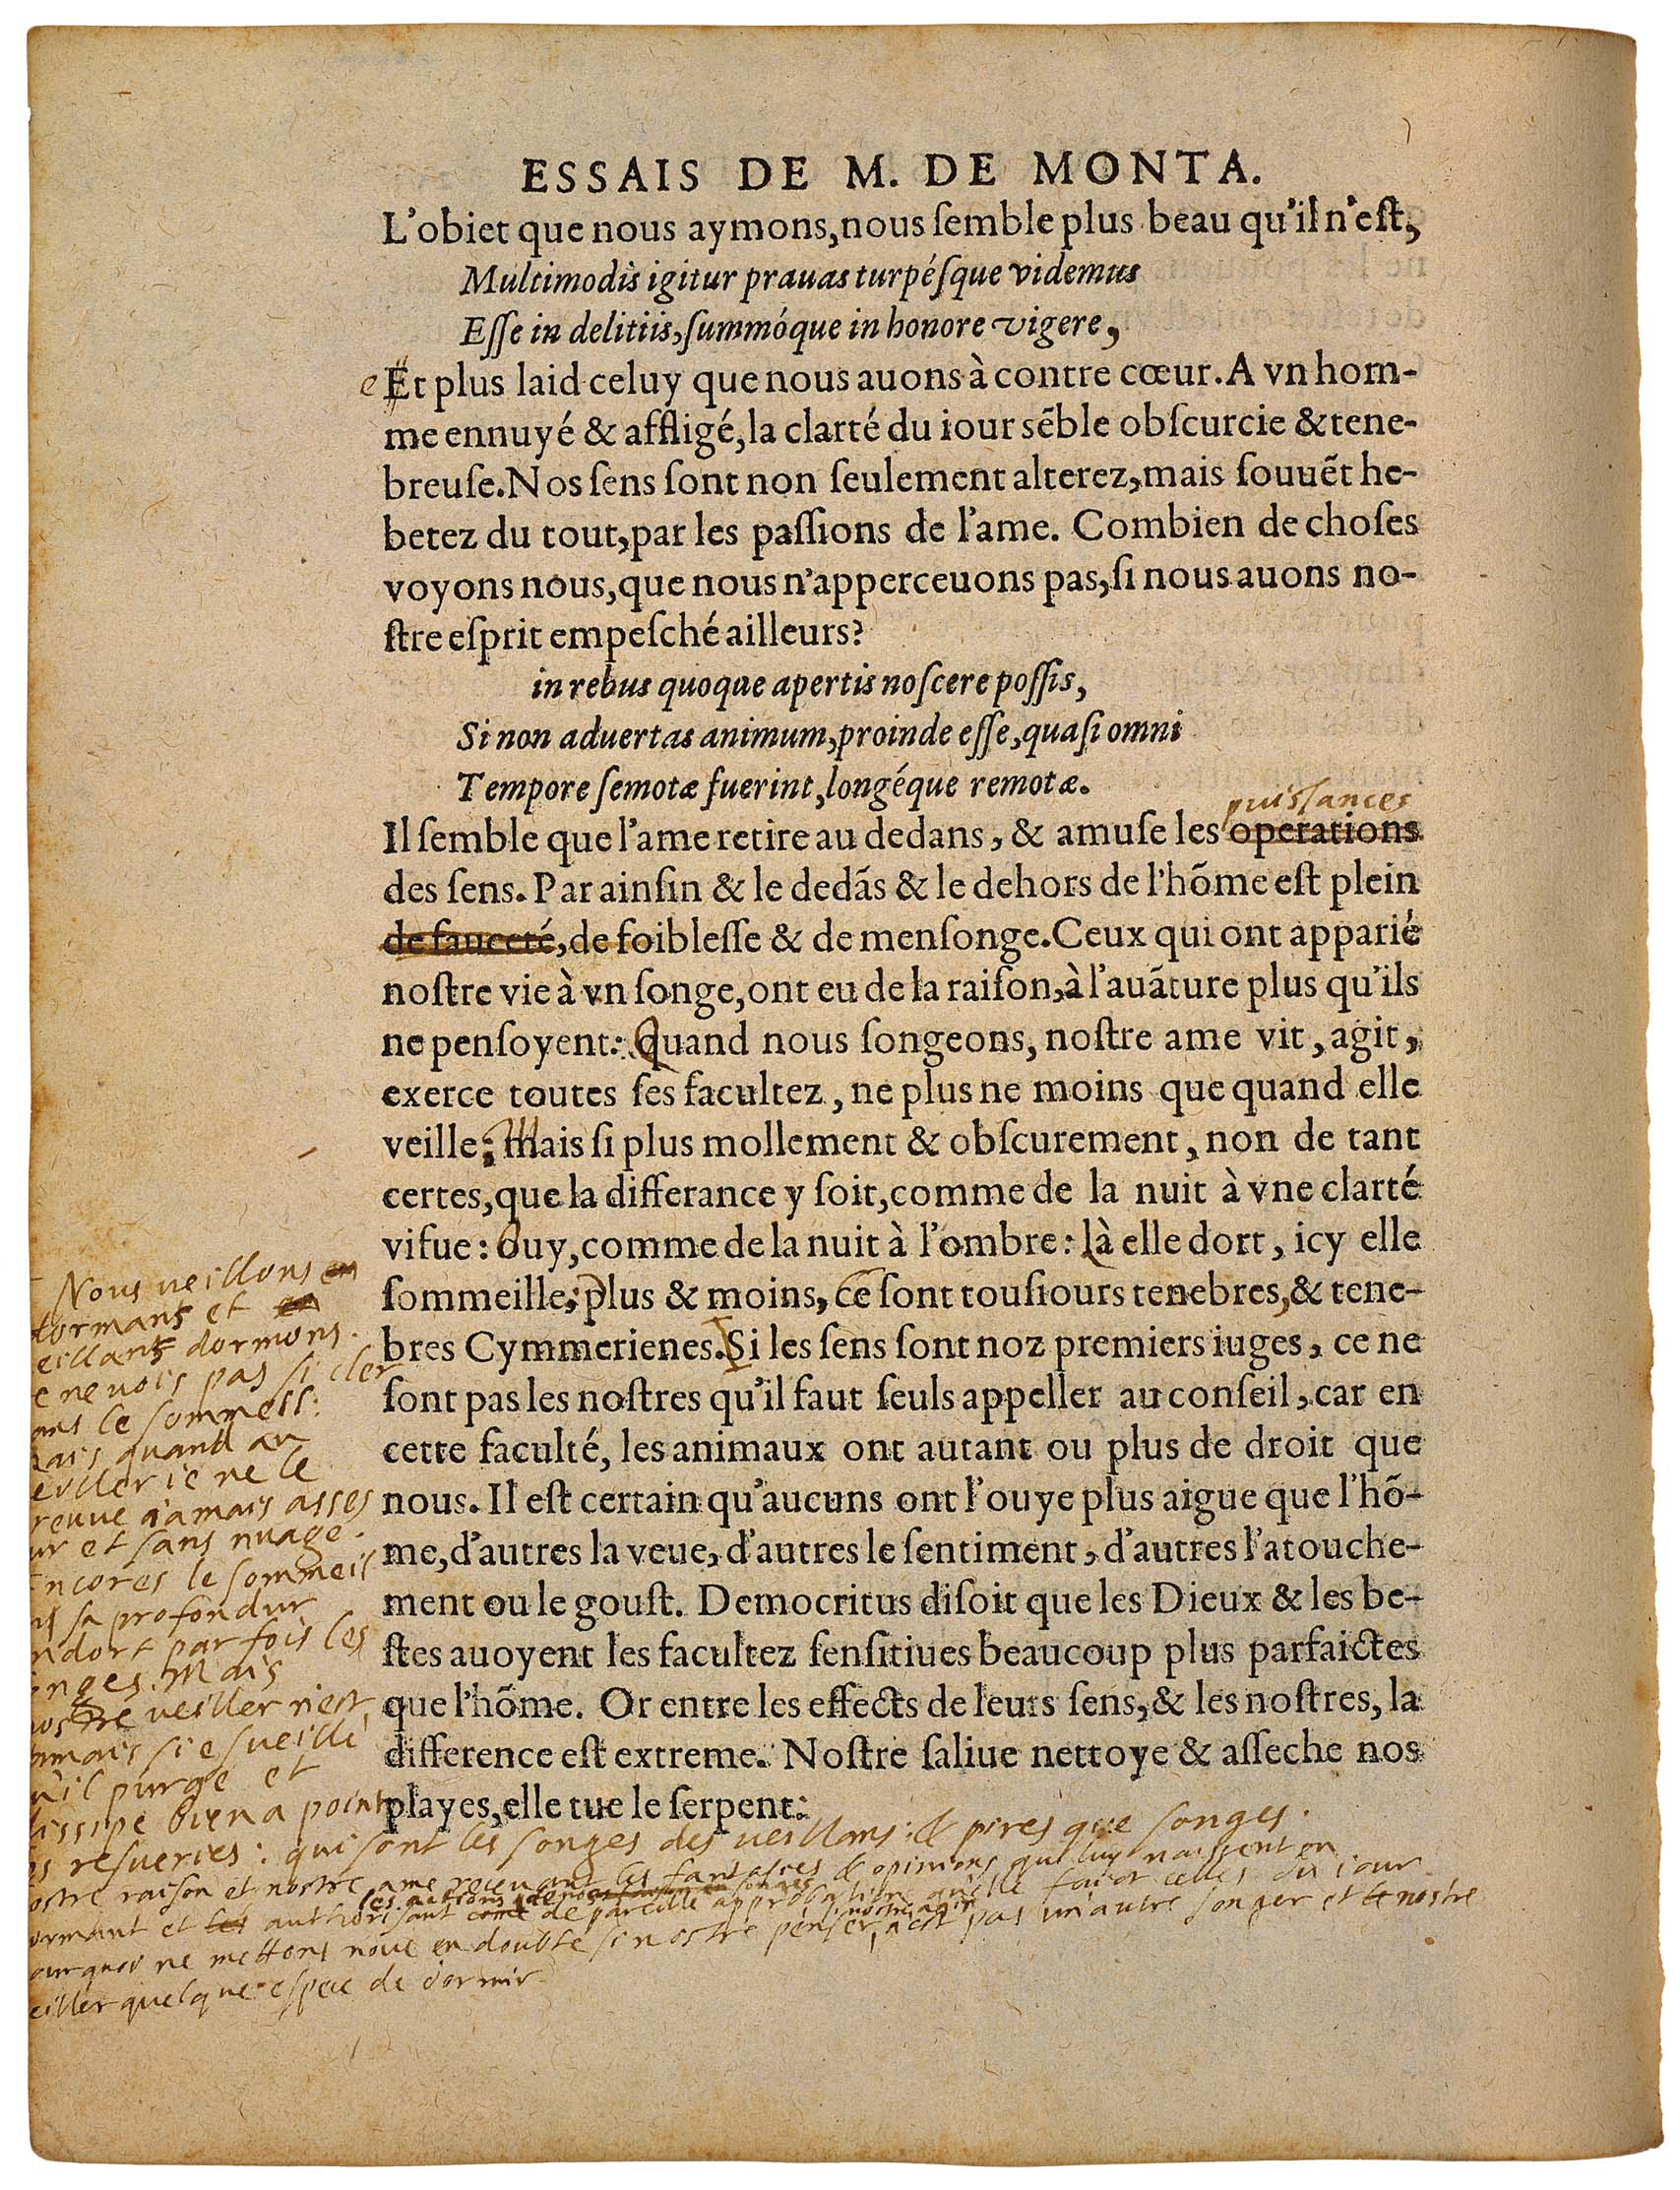 ESSAIS DE M. DE MONTA.
L'obiet que nous aymons, nous ſemble plus beau qu'il n'eſt,
Multimodis igitur prauas turpéſque videmus
Eſſe in delitiis, ſummóque in honore vigere,
e Et plus laid celuy que nous auons à contre cœur. A vn hom-
me ennuyé & affligé, la clarté du iour sẽble obſcurcie & tene-
breuſe. Nos ſens ſont non ſeulement alterez, mais ſouuẽt he-
betez du tout, par les paſſions de l'ame. Combien de choſes
voyons nous, que nous n'apperceuons pas, ſi nous auons no-
ſtre eſprit empeſché ailleurs?
in rebus quoque apertis noſcere poſſis,
Si non aduertas animum, proinde eſſe, quaſi omni
Tempore ſemotæ fuerint, longéque remotæ.
puissances
Il ſemble que l'ame retire au dedans, & amuſe les operations
des ſens. Par ainſin & le dedãs & le dehors de l'hõme eſt plein
de fauceté, de foibleſſe & de menſonge. Ceux qui ont apparié
noſtre vie à vn ſonge, ont eu de la raiſon, à l'auãture plus qu'ils
ne penſoyent: Quand nous ſongeons, noſtre ame vit, agit,
exerce toutes ſes facultez, ne plus ne moins que quand elle
veille; mais ſi plus mollement & obſcurement, non de tant
certes, que la differance y ſoit, comme de la nuit à vne clarté
vifue: Ouy, comme de la nuit à l'ombre: là elle dort, icy elle
ſommeille; plus & moins, ce ſont touſiours tenebres, & tene-
bres Cymmerienes. Si les ſens ſont noz premiers iuges, ce ne
ſont pas les noſtres qu'il faut ſeuls appeller au conſeil, car en
cette faculté, les animaux ont autant ou plus de droit que
nous. Il eſt certain qu'aucuns ont l'ouye plus aigue que l'hõ-
me, d'autres la veue, d'autres le ſentiment, d'autres l'atouche-
ment ou le gouſt. Democritus diſoit que les Dieux & les be-
ſtes auoyent les facultez ſenſitiues beaucoup plus parfaictes
que l'hõme. Or entre les effects de leurs ſens, & les noſtres, la
difference eſt extreme. Noſtre ſaliue nettoye & aſſeche nos
playes, elle tue le ſerpent:
Nous veillons en
dormans et en
eillans dormons.
e ne vois pas si cler
ans le sommeil:
Mais quand au
eiller ie ne le
reuue iamais asses
ur et sans nuage.
Encores le sommeil
en sa profondur
ndort par fois les
onges. Mais
nostre veiller n'est
iamais si esueillé
u'il purge et
dissipe bien a point
es resueries: qui sont les songes des veillans: & pires que songes.
ostre raison et nostre ame receuant les fantasies & opinions qui luy naissent en
les actions de nos songes
ormant et les authorisant come de pareille approbation qu'elle faict celles du iour
nostre agir
ourquoi ne mettons nous en doubte si nostre penser, n'est pas un autre songer et le nostre
eiller quelque espece de dormir